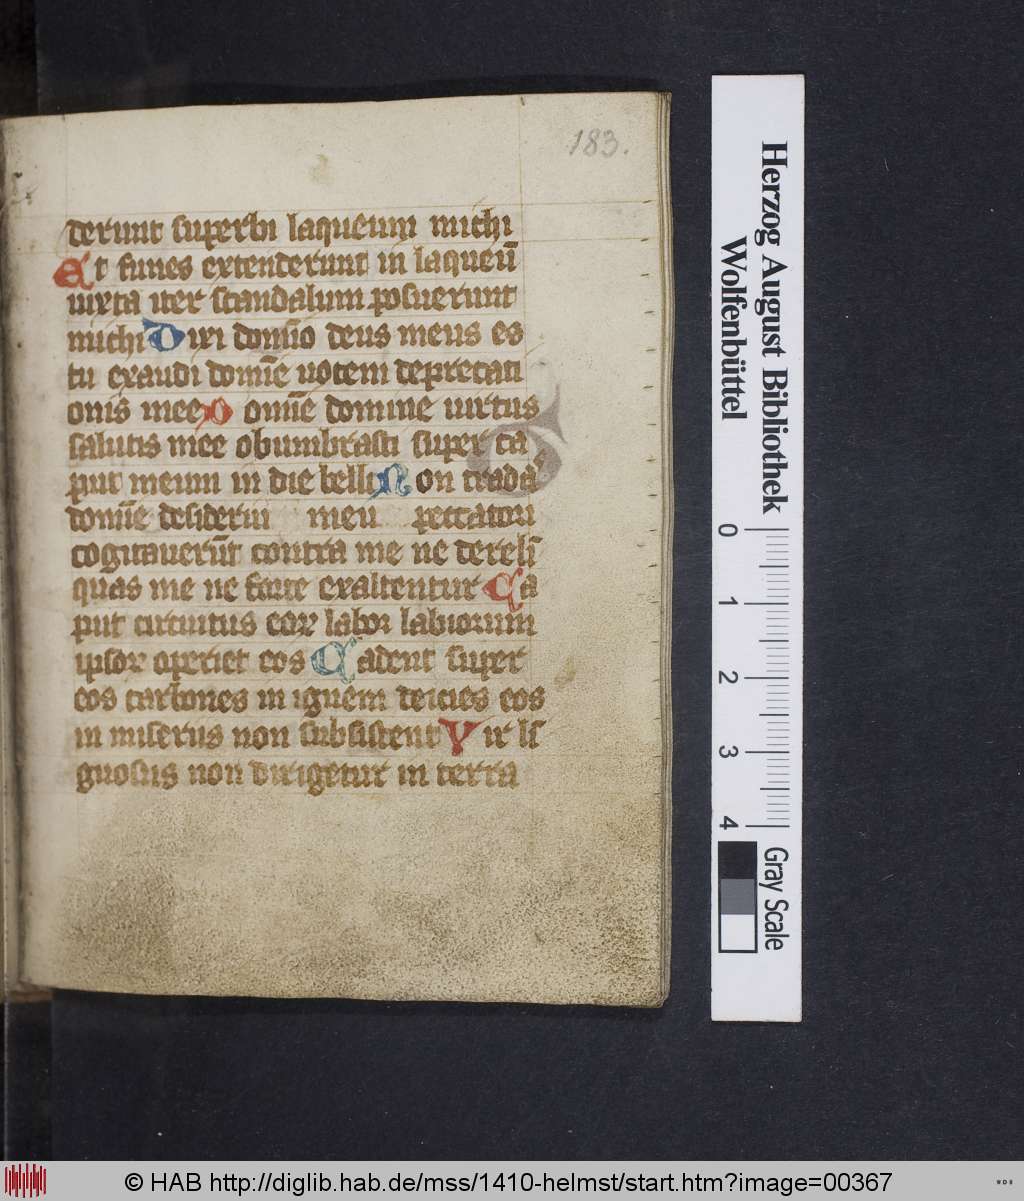 183.
derunt superbi laqueum michi
Et funes extenderunt in laqueū
iuxta iter scandalum posuerunt
michi Dixi domīo deus meus es
tu exaudi domīe uocem deprecati
onis mee Domīe domine uirtus
salutis mee obumbrasti super ca
put meum in die belli Non tradas
domīe desiderui meu peccatori
cogitauerūt contra me ne dereli
quas me ne forte exaltentur Ca
put circuitus eoꝝ labor labiorum
ipsoꝝ operiet eos Cadent super
eos carbones in ignem deicies eos
in miseriis non subsistent Vir li
guosus non dirigetur in terra
Herzog August Bibliothek
Wolfenbüttel
0 1 2 3 4
Gray Scale
© HAB http://diglib.hab.de/mss/1410-helmst/start.htm?image=00367